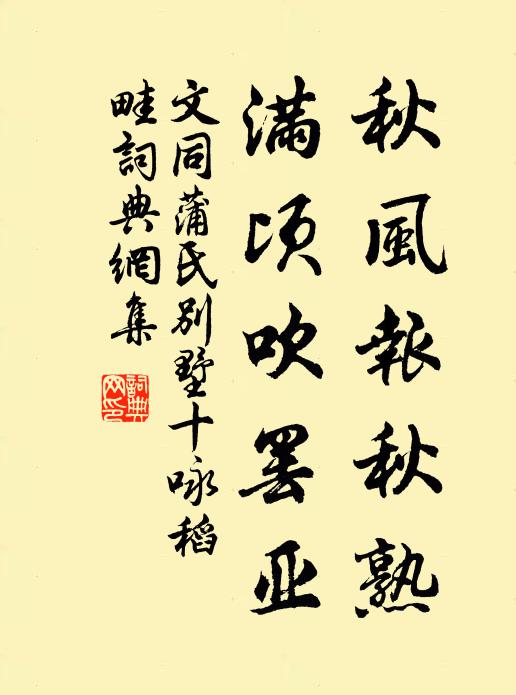 秋風報秋熟
滿頃吹罢亚
文同蒲氏别墅十咏稻
畦詞典網集
詞典網印